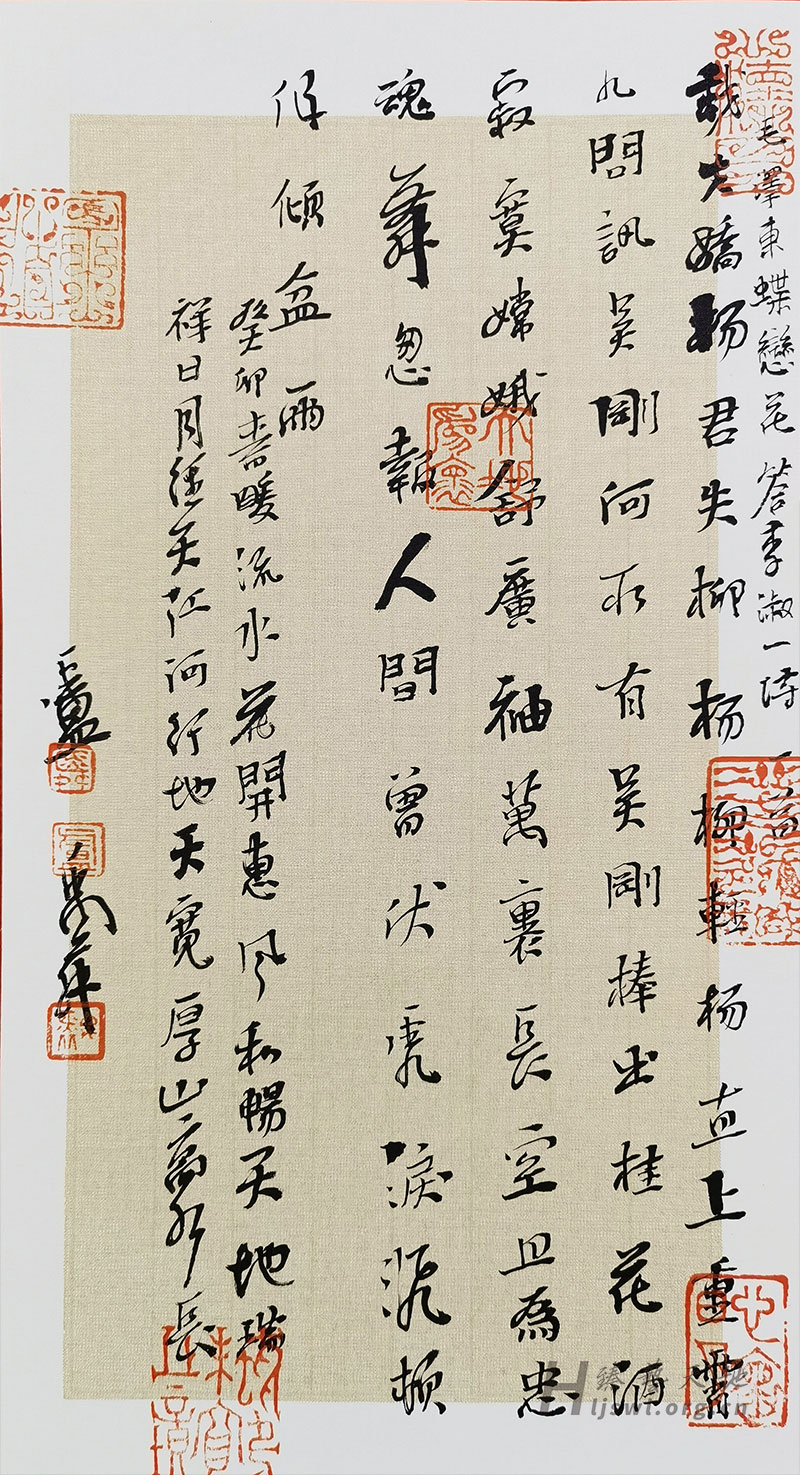 毛澤東蝶戀花答李淑一詩一首
我失嬌杨君失柳杨柳輕杨直上重霄
九問訊吴剛何所有吴剛捧出桂花酒
寂寞嫦娥舒廣袖萬裏長空且為忠
魂舞忽報人間曾伏虎淚飛頓
作傾盆雨
癸卯春暖流水花開惠风和暢天地瑞
祥日月經天江河行地天寬厚山高水長
盧禹舜
ljswt.org.cn